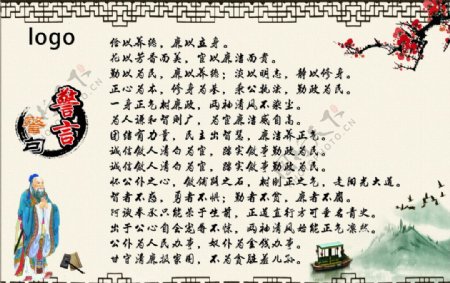 logo
警言
警句
俭以养德，廉以立身。
花以芳香而美，官以廉洁而贵。
勤以为民，廉以养德；淡以明志，静以修身。
正心为本，修身为基，秉公执法，勤政为民。
一身正气树廉政，两袖清风不染尘。
为人谦和智则广，为官廉洁威自高。
团结有力量，民主出智慧，廉洁养正气。
诚信做人清白为官，踏实做事勤政为民。
诚信做人清白为官，踏实做事勤政为民。
怀公仆之心，做铺路之石，树刚正之气，走阳光大道。
智者不惑，勇者不惧；勤者不贫，廉者不腐。
阿谀奉承只能荣于生前，正道直行方可重名青史。
出于公心自会宠辱不惊，两袖清风始能正气凛然。
公仆为人民办事，奴仆为金钱办事。
甘官清廉报家国，不为贪脏羞儿孙。